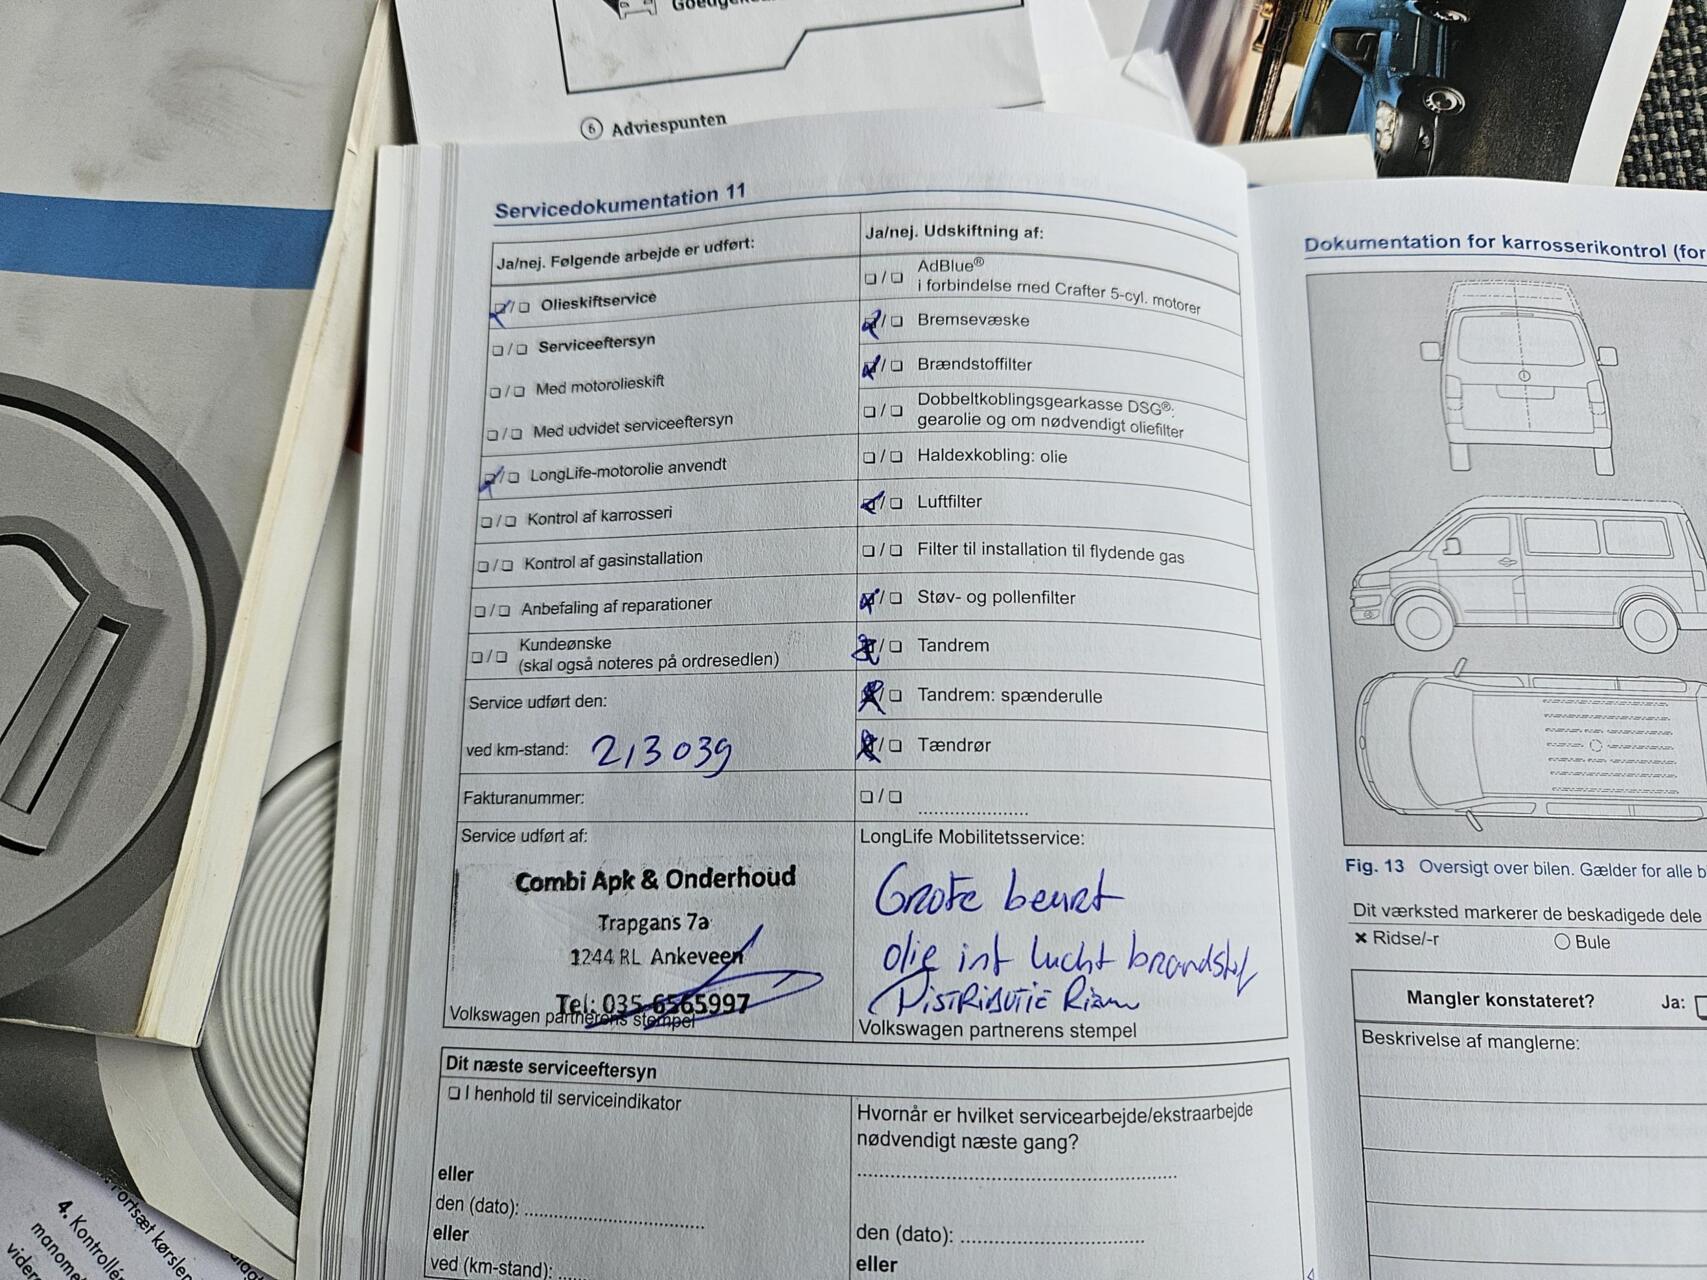 6 Adviespunten
Servicedokumentation 11
Ja/nej. Følgende arbejde er udført:
Olieskiftservice
Serviceeftersyn
Med motorolieskift
Med udvidet serviceeftersyn
LongLife-motorolie anvendt
Kontrol af karrosseri
Kontrol af gasinstallation
Anbefaling af reparationer
Kundeønske
(skal også noteres på ordresedlen)
Service udført den:
ved km-stand: 213039
Fakturanummer:
Service udført af:
Combi Apk & Onderhoud
Trapgans 7a
1244 RL Ankeveen
Tel: 035-6565997
Volkswagen partnerens stempel
Ja/nej. Udskiftning af:
AdBlue®
i forbindelse med Crafter 5-cyl. motorer
Bremsevæske
Brændstoffilter
Dobbeltkoblingsgearkasse DSG®:
gearolie og om nødvendigt oliefilter
Haldexkobling: olie
Luftfilter
Filter til installation til flydende gas
Støv- og pollenfilter
Tandrem
Tandrem: spænderulle
Tændrør
LongLife Mobilitetsservice:
Grote beurt
olie int lucht brandstof
Distributie Riem
Volkswagen partnerens stempel
Dit næste serviceeftersyn
I henhold til serviceindikator
eller
den (dato):
eller
ved (km-stand):
Hvornår er hvilket servicearbejde/ekstraarbejde
nødvendigt næste gang?
den (dato):
eller
Dokumentation for karrosserikontrol (for
Fig. 13 Oversigt over bilen. Gælder for alle b
Dit værksted markerer de beskadigede dele
Ridse/-r Bule
Mangler konstateret? Ja:
Beskrivelse af manglerne:
Fortsæt kørslen
4. Kontrollér
manome
videre